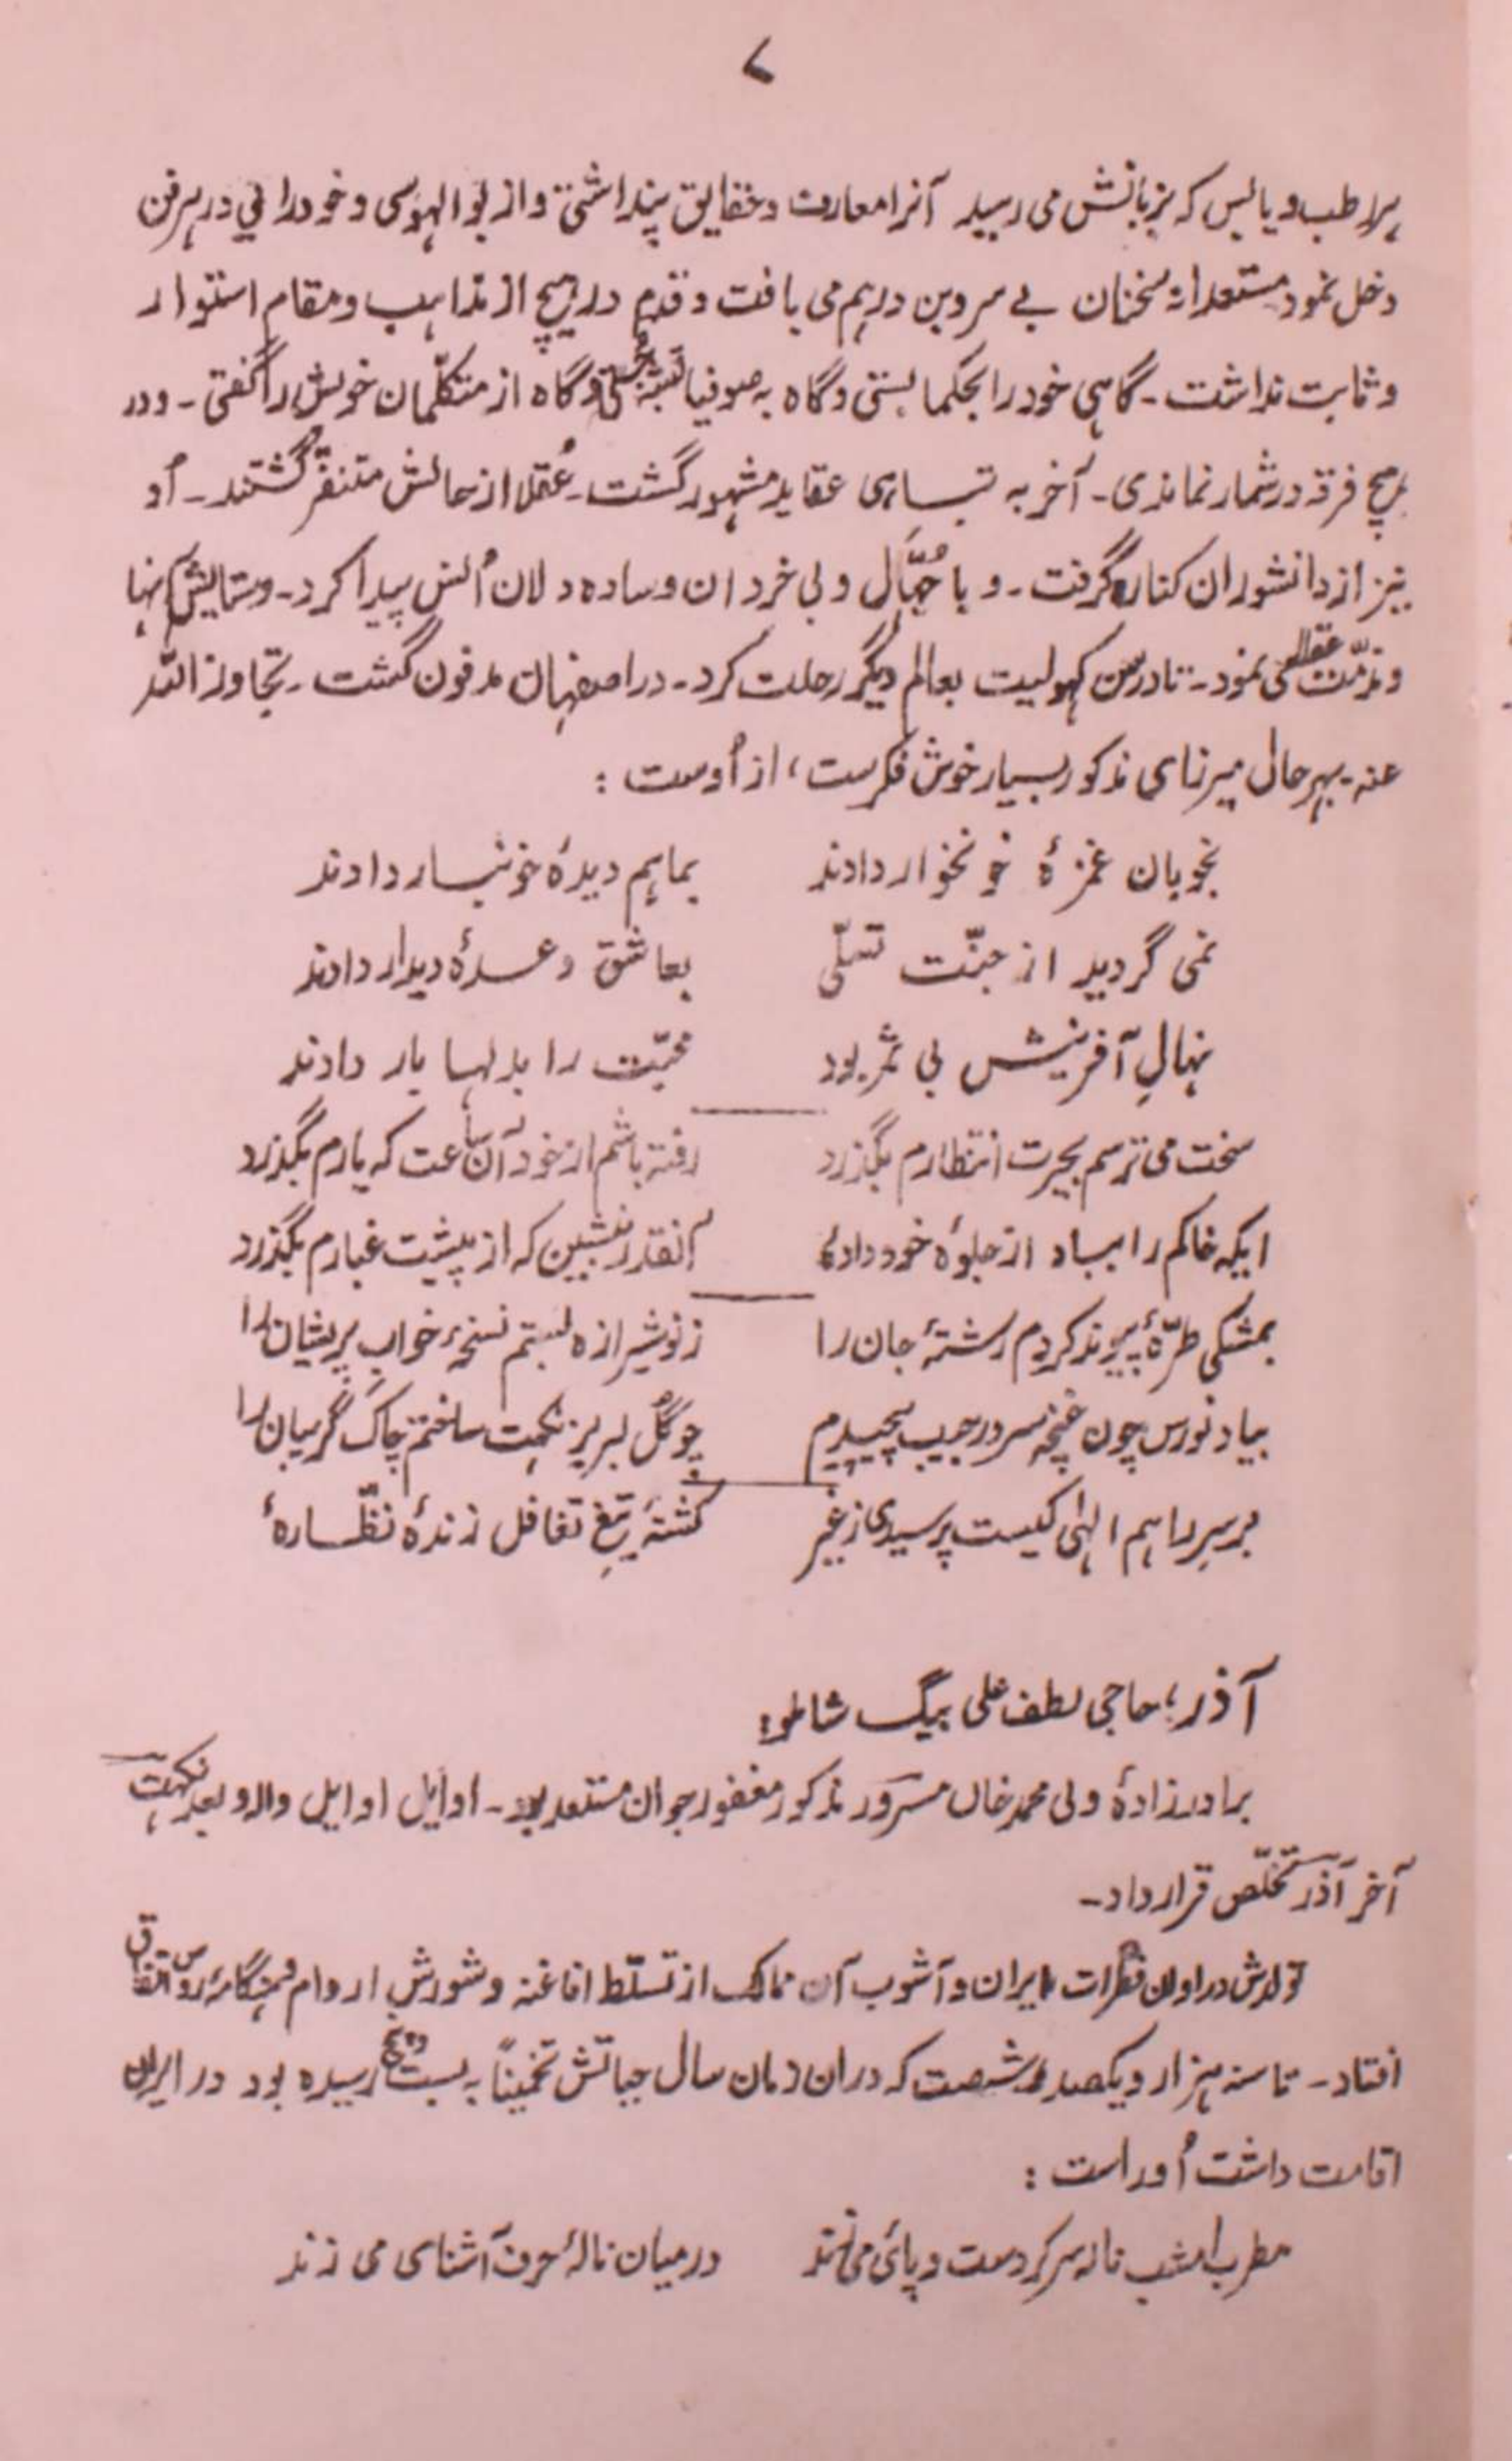 ۷
ہر رطب و یابس کہ بزبانش می رسید آنرا معارف و حقایق پنداشتی و از بوالہوسی و خودرائی در ہر فن
دخل نمود مستعدانہ سخنان بے سر و بن درہم می بافت و قدم در ہیچ از مذاہب و مقام استوار
و ثابت نداشت ـ گاہی خود را بحکما بستی و گاہ بہ صوفیا نسبت جستی و گاہ از متکلّمان خویش را گفتی ـ و در
ہیچ فرقہ در شمار نماندی ـ آخر بہ تباہی عقاید مشہور گشت ـ عُقلا از حالش متنفّر گشتند ـ اُو
نیز از دانشوران کنارہ گرفت ـ و با جُہّال و بی خردان و سادہ دلان اُنس پیدا کرد ـ و ستایش آنہا
و مذمّت عقلا می نمود ـ تا در سن کہولیت بعالم دیگر رحلت کرد ـ در اصفہان مدفون گشت ـ تجاوز اللّہ
عنہ ـ بہر حال میرزای مذکور بسیار خوش فکرست، از اُوست :
بخوبان غمزۂ خونخوار دادند بماہم دیدۂ خونبار دادند
نمی گردید از جنّت تسلّی بعاشق وعدۂ دیدار دادند
نہالِ آفرینش بی ثمر بود محبّت را بدلہا بار دادند
سخت می ترسم بحیرت انتظارم بگذرد رفتہ باشم از خود آن ساعت کہ یارم بگذرد
ایکہ خاکم را بباد از جلوۂ خود دادۂ آنقدر بنشین کہ از پیشت غبارم بگذرد
بمشکی طرّۂ پیوند کردم رشتۂ جان را ز نو شیرازہ بستم نسخۂ خواب پریشان را
بیاد نورس چون غنچہ سر در جیب پیچیدم چو گُل لبریز نکہت ساختم چاک گریبان را
بر سرِ راہم الٰہی کیست پرسیدی ز غیر کشتۂ تیغِ تغافل زندۂ نظّارۂ
آذر، حاجی لطف علی بیگ شاملو :
برادر زادۂ ولی محمد خان مسرور مذکور مغفور جوان مستعد بود ـ اوایل اوایل والہ و بعد نکہت
آخر آذر تخلّص قرار داد ـ
تولدش در اوان فترات ایران و آشوب آن ممالک از تسلّط افاغنہ و شورش اروام و ہنگامۂ روس اتفاق
افتاد ـ تا سنہ ہزار و یکصد و شصت کہ در ان زمان سال حیاتش تخمیناً بہ بست و پنج رسیدہ بود در ایران
اقامت داشت اُو راست :
مطرب امشب نالہ سر کرد ست و پائی می زند در میان نالہ حرف آشنای می زند